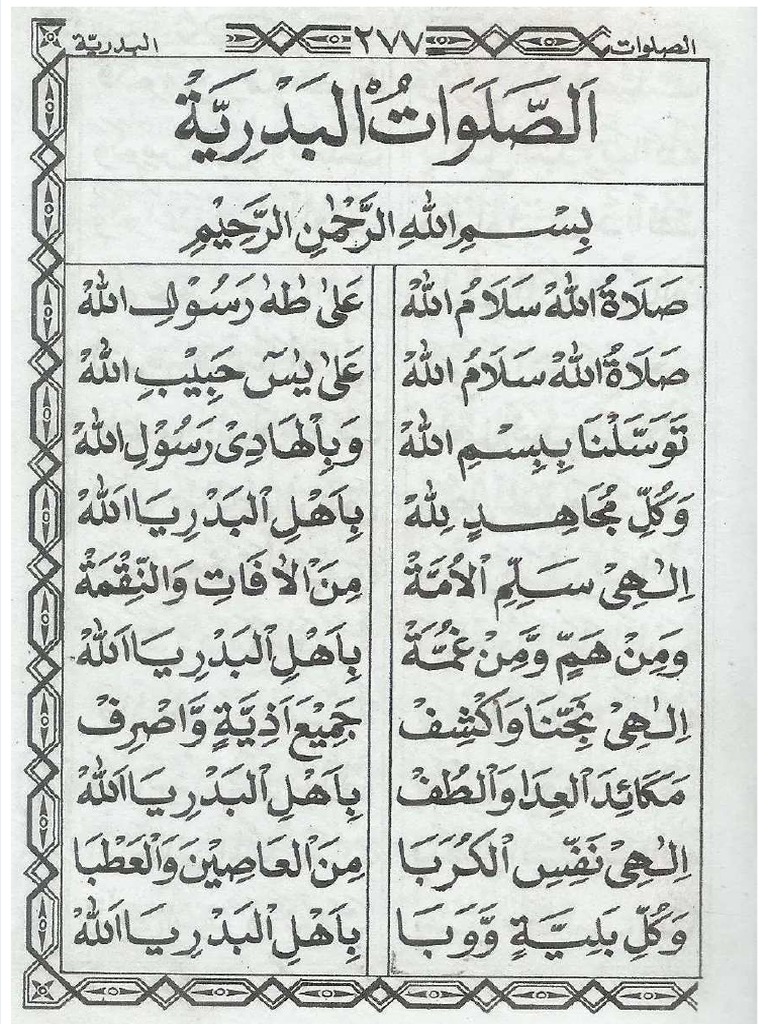 الصلوات ٢٧٧ البدرية
اَلصَّلَوَاتُ الْبَدْرِيَّةْ
بِسْمِ اللهِ الرَّحْمٰنِ الرَّحِيْمِ
صَلَاةُ اللهْ سَلَامُ اللهْ عَلٰى طٰهٰ رَسُوْلِ اللهْ
صَلَاةُ اللهْ سَلَامُ اللهْ عَلٰى يٰسٓ حَبِيْبِ اللهْ
تَوَسَّلْنَا بِبِسْمِ اللهْ وَبِالْهَادِيْ رَسُوْلِ اللهْ
وَكُلِّ مُجَاهِدٍ لِلهْ بِاَهْلِ الْبَدْرِ يَا اَللهْ
اِلٰهِيْ سَلِّمِ الْاُمَّةْ مِنَ الْاٰفَاتِ وَالنِّقْمَةْ
وَمِنْ هَمٍّ وَّمِنْ غُمَّةْ بِاَهْلِ الْبَدْرِ يَا اَللهْ
اِلٰهِيْ نَجِّنَا وَاكْشِفْ جَمِيْعَ اَذِيَّةٍ وَّاصْرِفْ
مَكَائِدَ الْعِدَا وَالْطُفْ بِاَهْلِ الْبَدْرِ يَا اَللهْ
اِلٰهِيْ نَفِّسِ الْكُرَبَا مِنَ الْعَاصِيْنَ وَالْعَطْبَا
وَكُلِّ بَلِيَّةٍ وَّوَبَا بِاَهْلِ الْبَدْرِ يَا اَللهْ